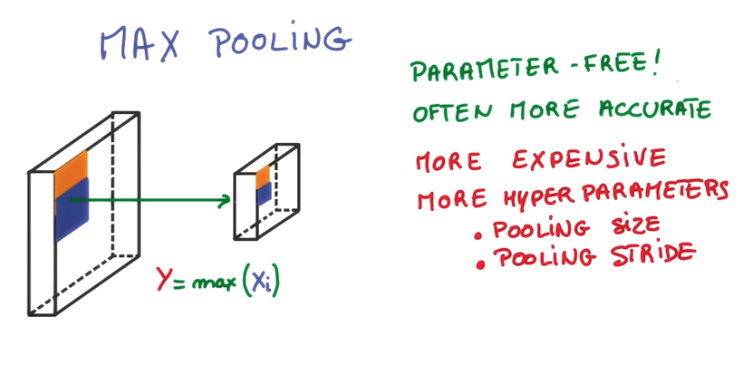 MAX POOLING
PARAMETER-FREE!
OFTEN MORE ACCURATE
MORE EXPENSIVE
MORE HYPER PARAMETERS
• POOLING SIZE
• POOLING STRIDE
Y = max (Xi)